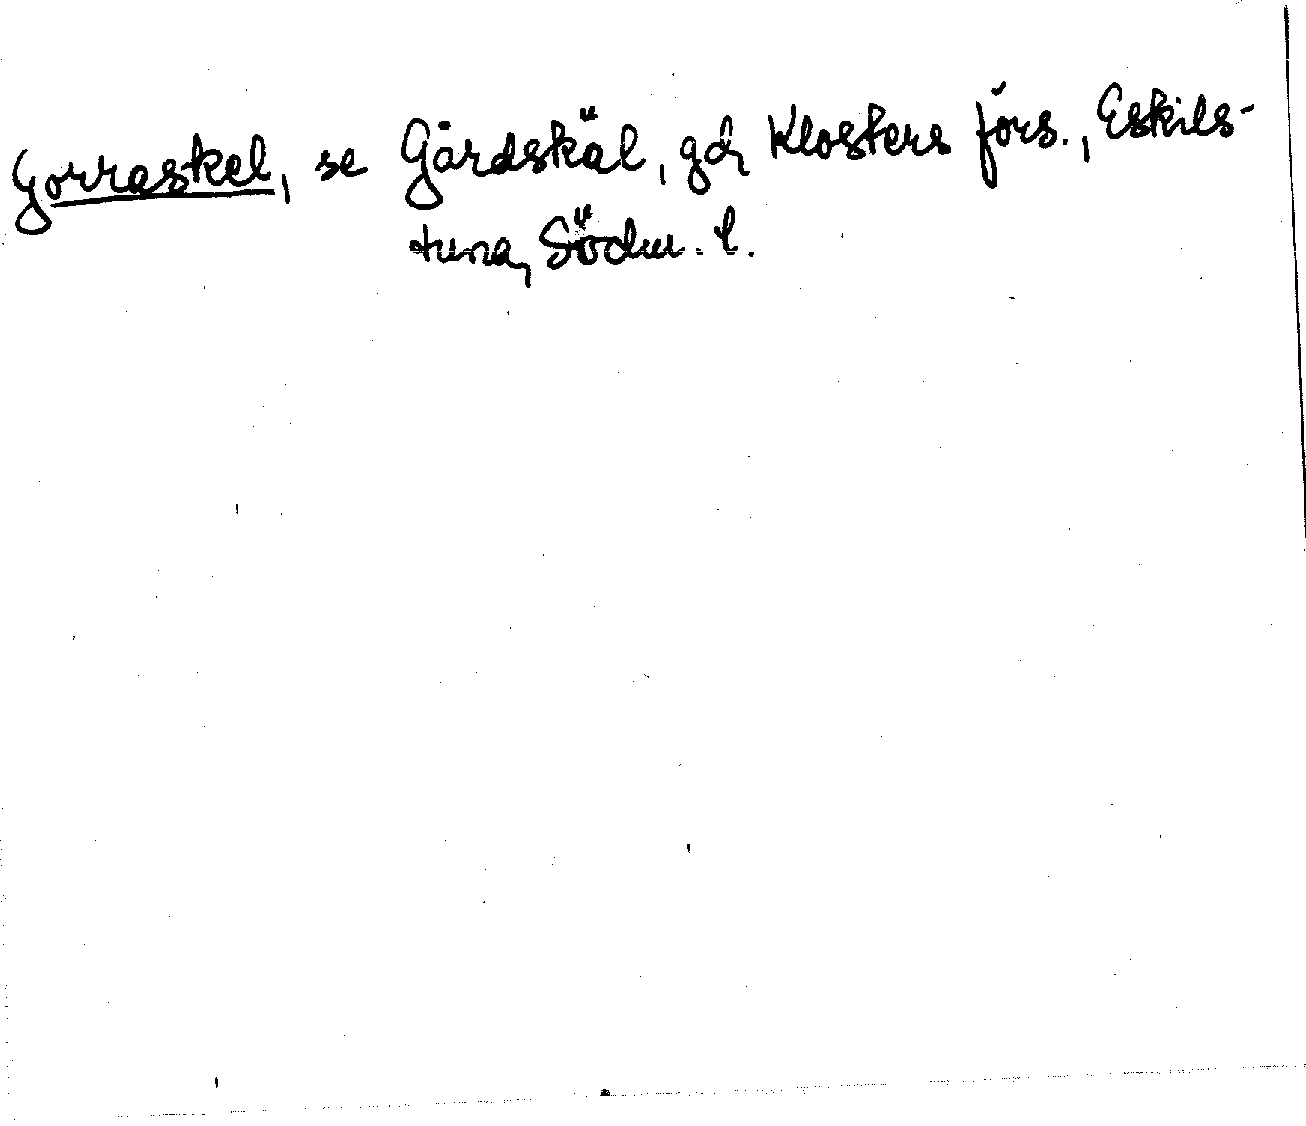 Gorraskel, se Gårdskäl, gd, Klosters förs., Eskils-
tuna, Södm. l.